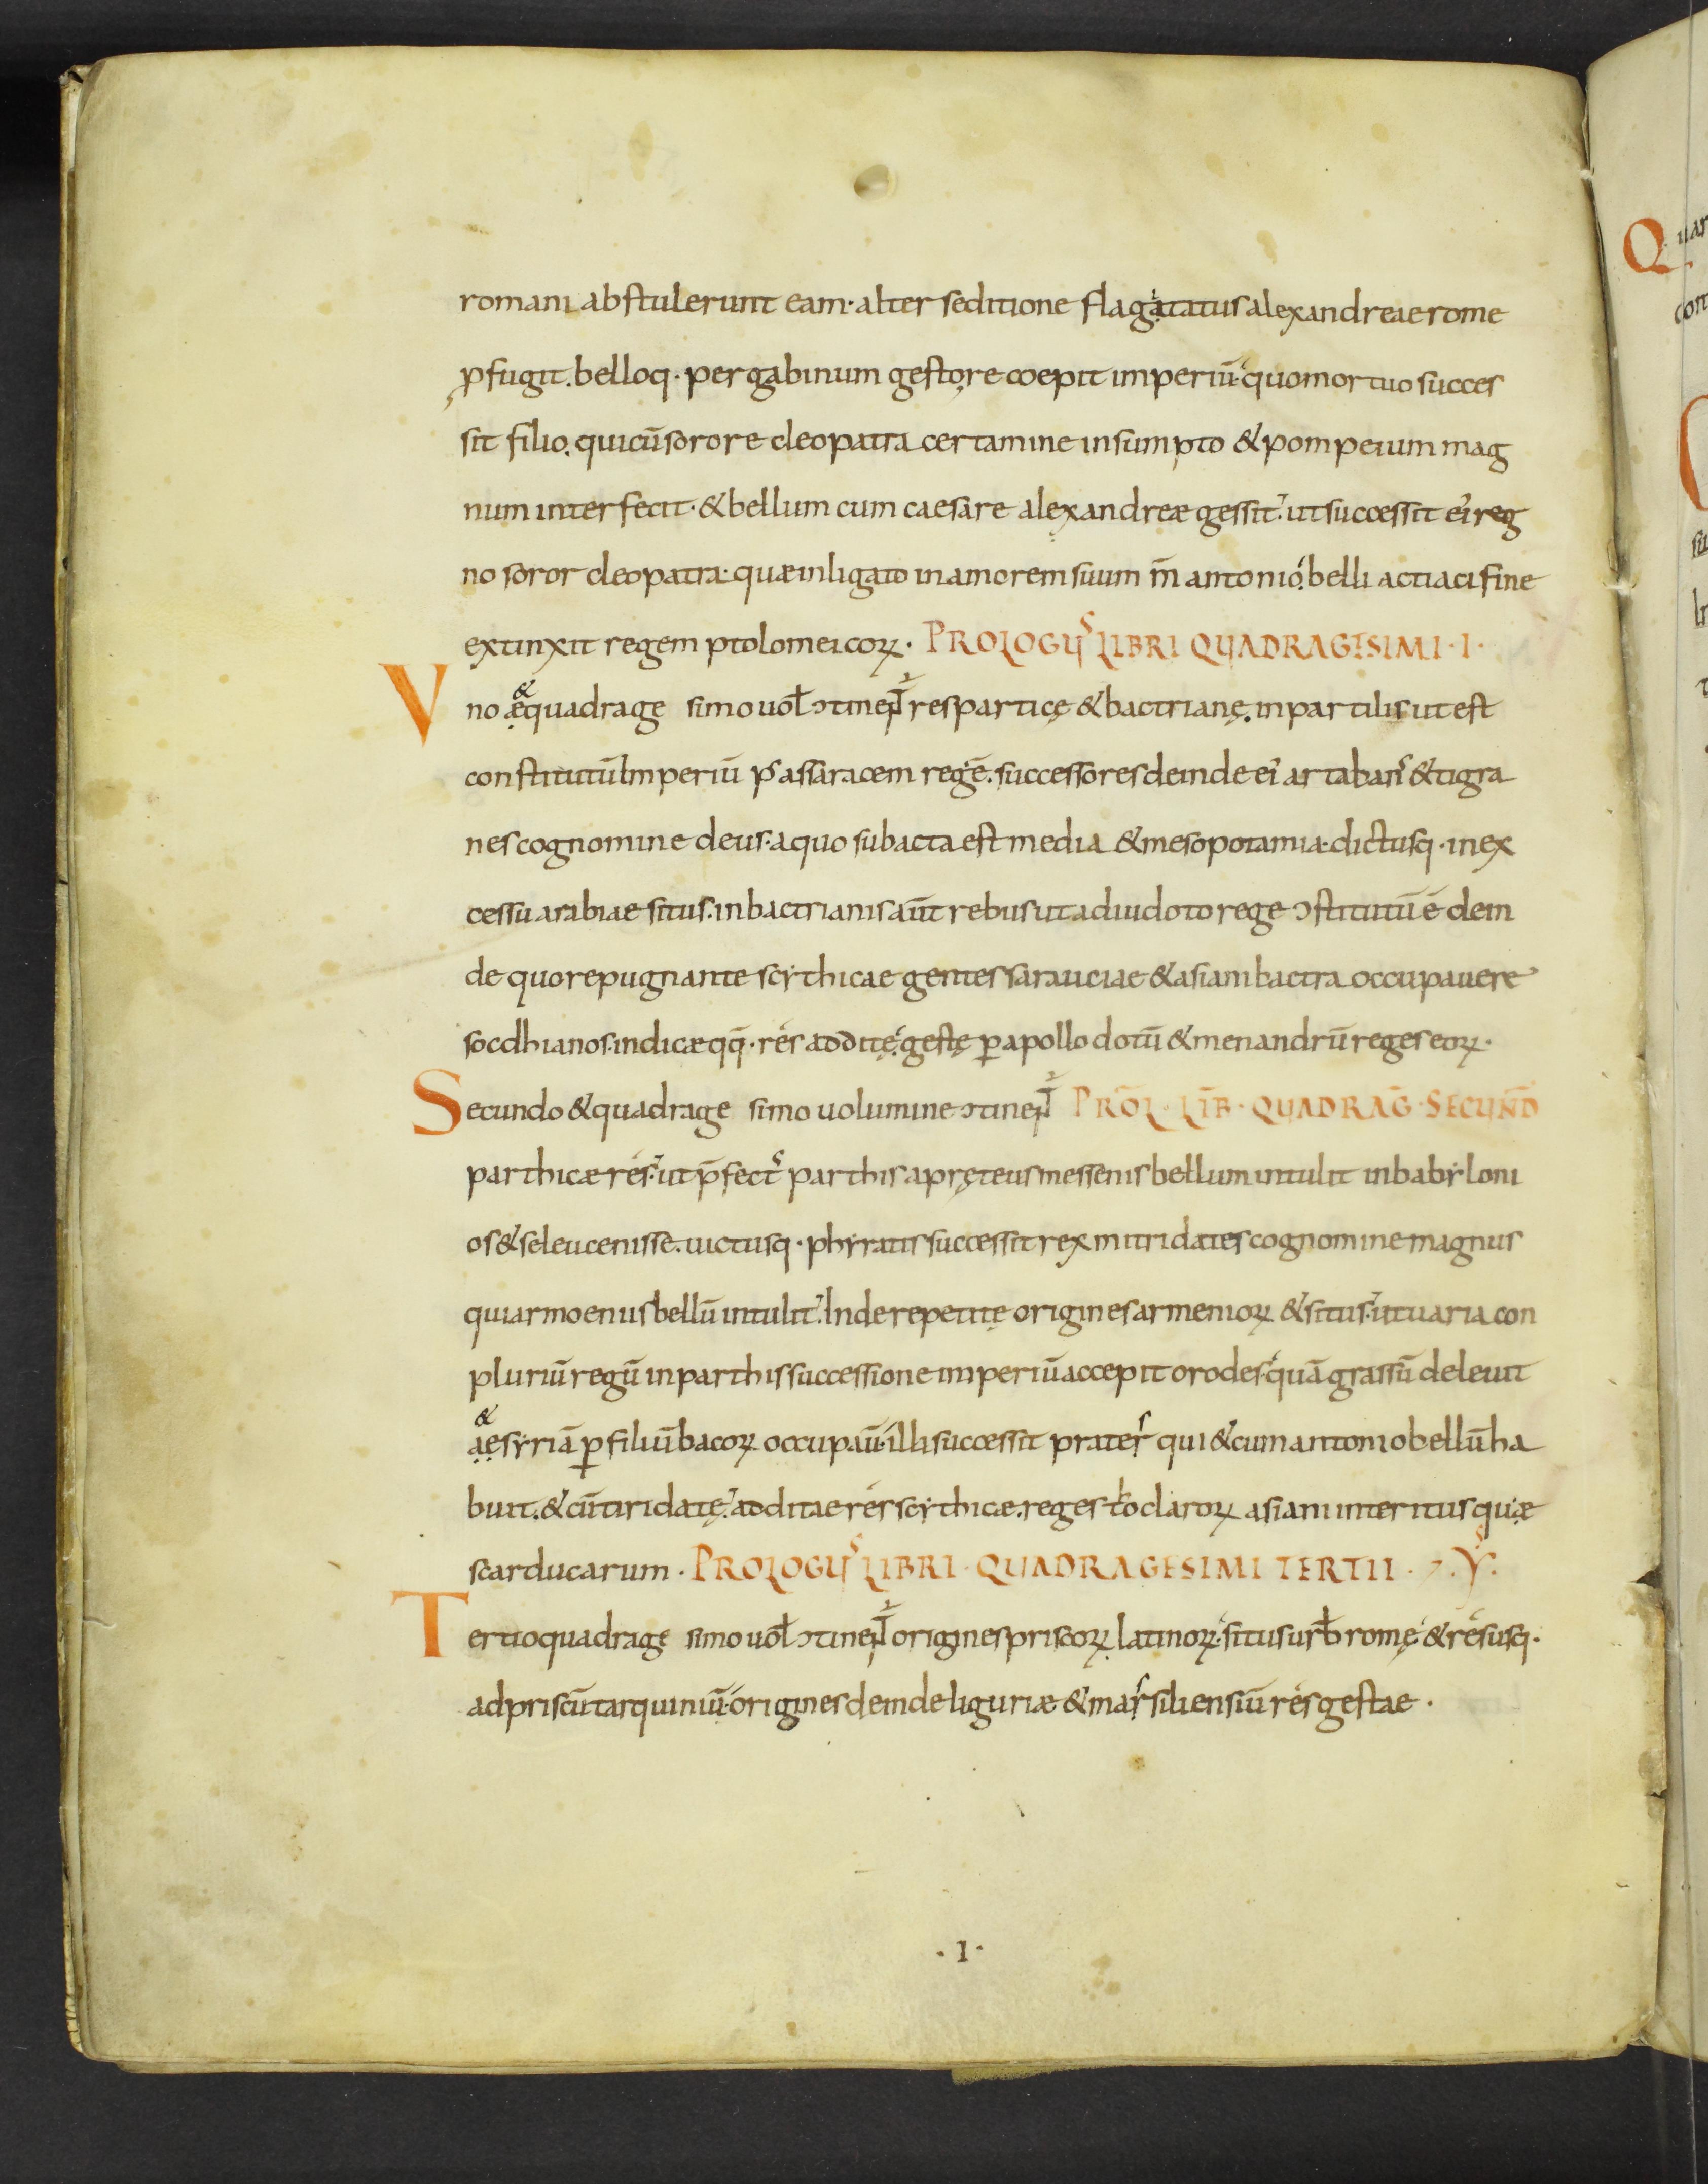 romani abstulerunt eam · alter seditione flagitatus alexandreae rome
ꝓfugit . belloq · per gabinum gestore coepit imperiū · quo mortuo succes
sit filio . qui cū sorore cleopatra certamine insumpto & pompeium mag
num interfecit · & bellum cum caesare alexandreæ gessit · ut successit ei' reg
no soror cleopatra · quæ inligato in amorem suum m̄ antonio · belli actiaci fine
extinxit regem ptolomeicoꝝ · PROLOGUS LIBRI QUADRAGESIMI · I ·
Vno & quadrage simo uoł ↄtinent respartice & bactriane . in partilis ut est
constitutū Imperiū p' assaracem regē . successores deinde ei' artaban' & tigra
nes cognomine deus · a quo subacta est media & mesopotamia · dictusq · in ex
cessu arabiae situs . in bactrianis aūt rebus ut a diuidoto rege ↄstitutū ē dein
de quo repugnante scythicae gentes sarauciae & asiani bactra occupauere
socdhianos . indicæ qq̄ · res addite gestę ꝑ apollodotū & menandrū reges eoꝝ ·
Secundo & quadrage simo uolumine ↄtinent PROL̄ · LIB̄ · QUADRAḠ · SECUND̄
parthicæ res · ut p̄fect' parthis a pręteus messenis bellum intulit in babyloni
os & seleucenisse . uictusq · phyratis successit rex mitridates cognomine magnus
qui armoenus bellū intulit . Inde repetitę origines armenioꝝ & situs · ut uaria con
pluriū regū in parthis successione imperiū accepit orodes · quā grassū deleuit
& syriā ꝑ filiū bacoꝝ occupau̅ · illi successit prater qui & cum antonio bellū ha
buit . & cū tiridatę · additae res scythicæ . reges tħoclaroꝝ asiani interitusquæ
scarducarum · PROLOGUS LIBRI · QUADRAGESIMI TERTII ·
Tertio quadrage simo uoł ↄtinent origines priscoꝝ latinoꝝ · situs urƀ romę & res usq ·
ad priscū tarquiniū · origines deinde liguriæ & marsiliensiū res gestae ·
· I ·